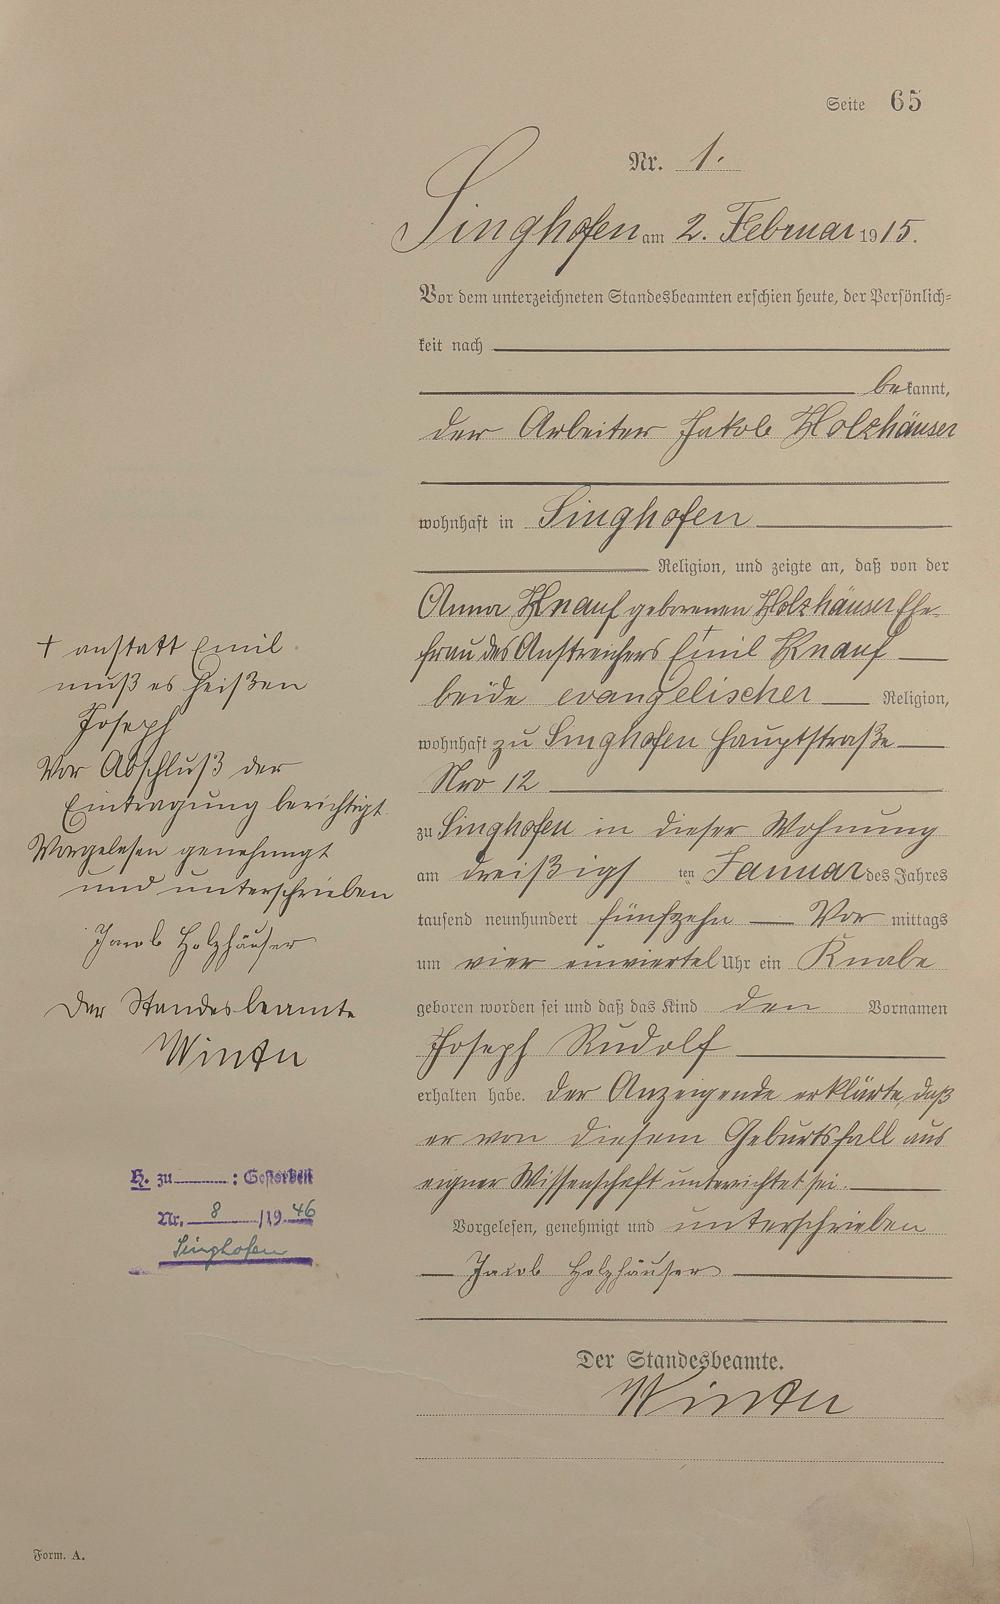 Seite 65
Nr. 1.
Singhofen am 2. Februar 1915.
Vor dem unterzeichneten Standesbeamten erschien heute, der Persönlich=
keit nach
bekannt,
der Arbeiter Jakob Holzhäuser
wohnhaft in Singhofen
Religion, und zeigte an, daß von der
Anna Knauf geborenen Holzhäuser Ehe-
frau des Anstreichers + Emil Knauf
beide evangelischer Religion,
wohnhaft zu Singhofen Hauptstraße
Nro 12
zu Singhofen in dieser Wohnung
am dreißigs ten Januar des Jahres
tausend neunhundert fünfzehn Vor mittags
um vier einviertel Uhr ein Knabe
geboren worden sei und daß das Kind den Vornamen
Joseph Rudolf
erhalten habe. Der Anzeigende erklärte, daß
er von diesem Geburtsfall aus
eigner Wissenschaft unterrichtet sei.
Vorgelesen, genehmigt und unterschrieben
Jacob Holzhäuser
Der Standesbeamte.
Winter
+ anstatt Emil
muß es heißen
Joseph
Vor Abschluß der
Eintragung berichtigt
Vorgelesen genehmigt
und unterschrieben
Jacob Holzhäuser
Der Standesbeamte
Winter
H. zu : Gestorben
Nr. 8 /19 46
Singhofen
Form. A.